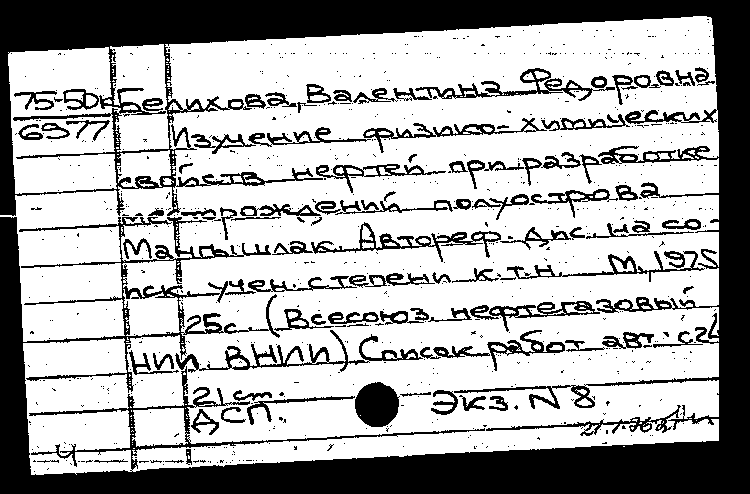 75-50к Белихова, Валентина Федоровна
6977 Изучение физико-химических
свойств нефтей при разработке
месторождений полуострова
Мангышлак. Автореф. дис. на со-
иск. учен. степени к.т.н. М., 1975
25с. (Всесоюз. нефтегазовый
НИИ. ВНИИ) Список работ авт.: с.24
21 ст.
ДСП. Экз. N 8.
4